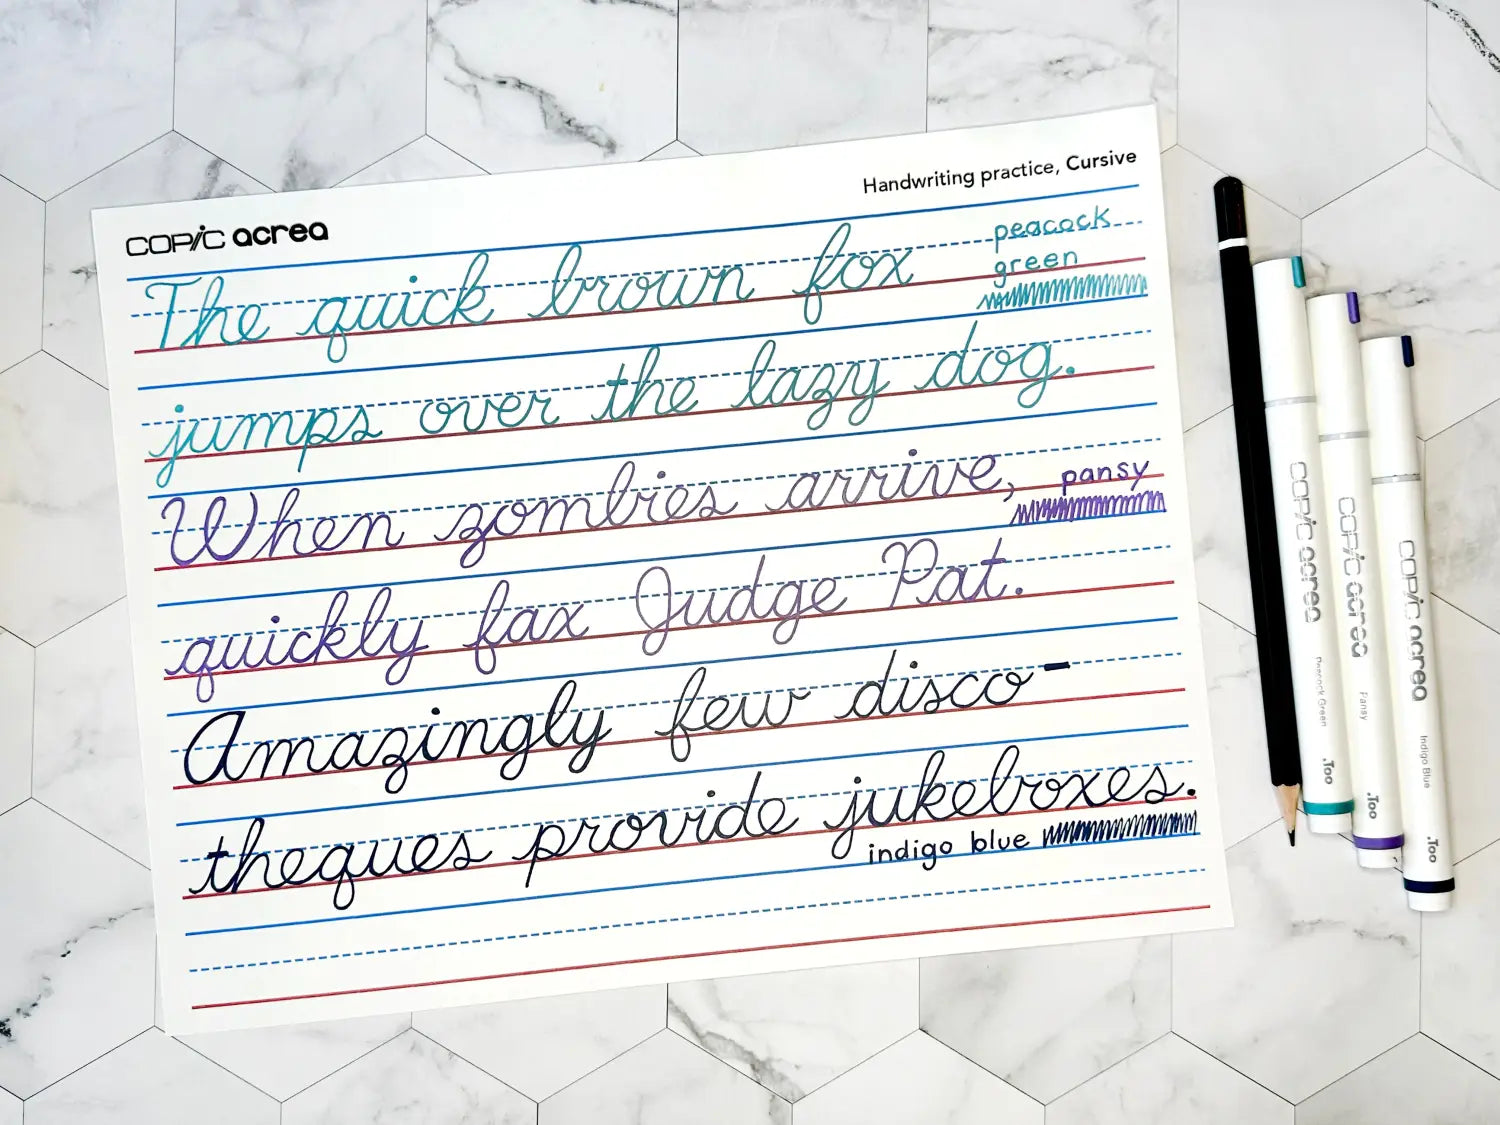 Handwriting practice, Cursive
COPIC acrea
The quick brown fox
peacock
green
jumps over the lazy dog.
When zombies arrive,
pansy
quickly fax Judge Pat.
Amazingly few disco-
theques provide jukeboxes.
indigo blue
COPIC acrea
Peacock Green
.Too
COPIC acrea
Pansy
.Too
COPIC acrea
Indigo Blue
.Too